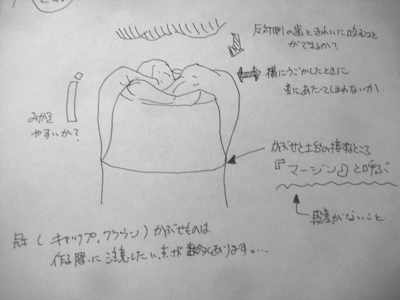 反対側の歯ときれいに咬むこと
ができるか?
横にうごかしたときに
変にあたってしまわないか
みがき
やすいか?
かぶせと土台の接するところ
『マージン』と呼ぶ
段差がないこと
冠(キャップ、クラウン)かぶせものは
作る際に注意したい点が数多くあります。...